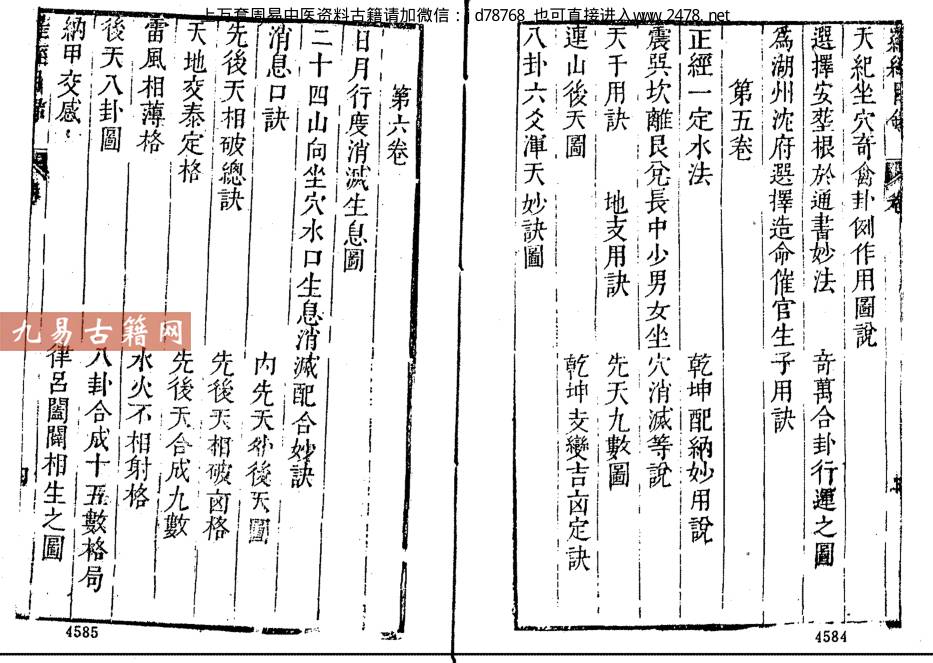 上万套周易中医资料古籍请加微信:jd78768 也可直接进入www.2478.net
天紀坐穴奇禽卦例作用圖說
選擇安塟根於通書妙法 竒萬合卦行運之圖
爲湖州沈府選擇造命催官生子用訣
第五卷
正經一定水法 乾坤配納妙用說
震巽坎離艮兌長中少男女坐穴消滅等說
天干用訣 地支用訣 先天九數圖
連山後天圖 乾坤支變吉凶定訣
八卦六爻渾天妙訣圖
4584
第六卷
日月行度消滅生息圖
二十四山向坐穴水口生息消滅配合妙訣
消息口訣 內先天卦後天圖
先後天相破總訣 先後天相破凶格
天地交泰定格 先後天合成九數
雷風相薄格 水火不相射格
後天八卦圖 八卦合成十五數格局
納甲交感 律呂闔闢相生之圖
四
4585
九易古籍网